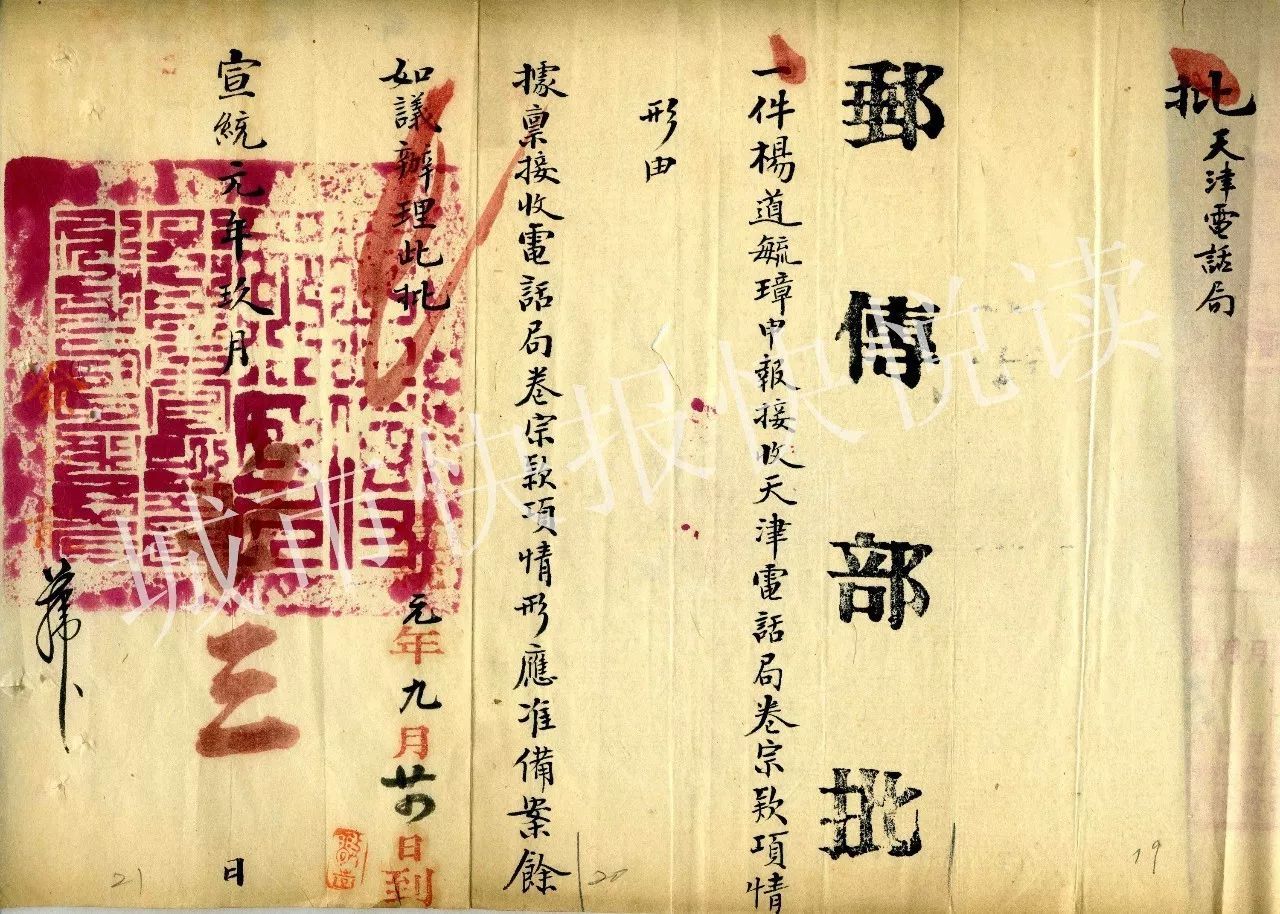 批天津電話局
郵傳部批
一件楊道毓璋申報接收天津電話局卷宗款項情
形由
據禀接收電話局卷宗款項情形應准備案餘
如議辦理此批
元年九月廿四日到
宣統元年玖月
三
日
城市快报快悦读
19
20
21